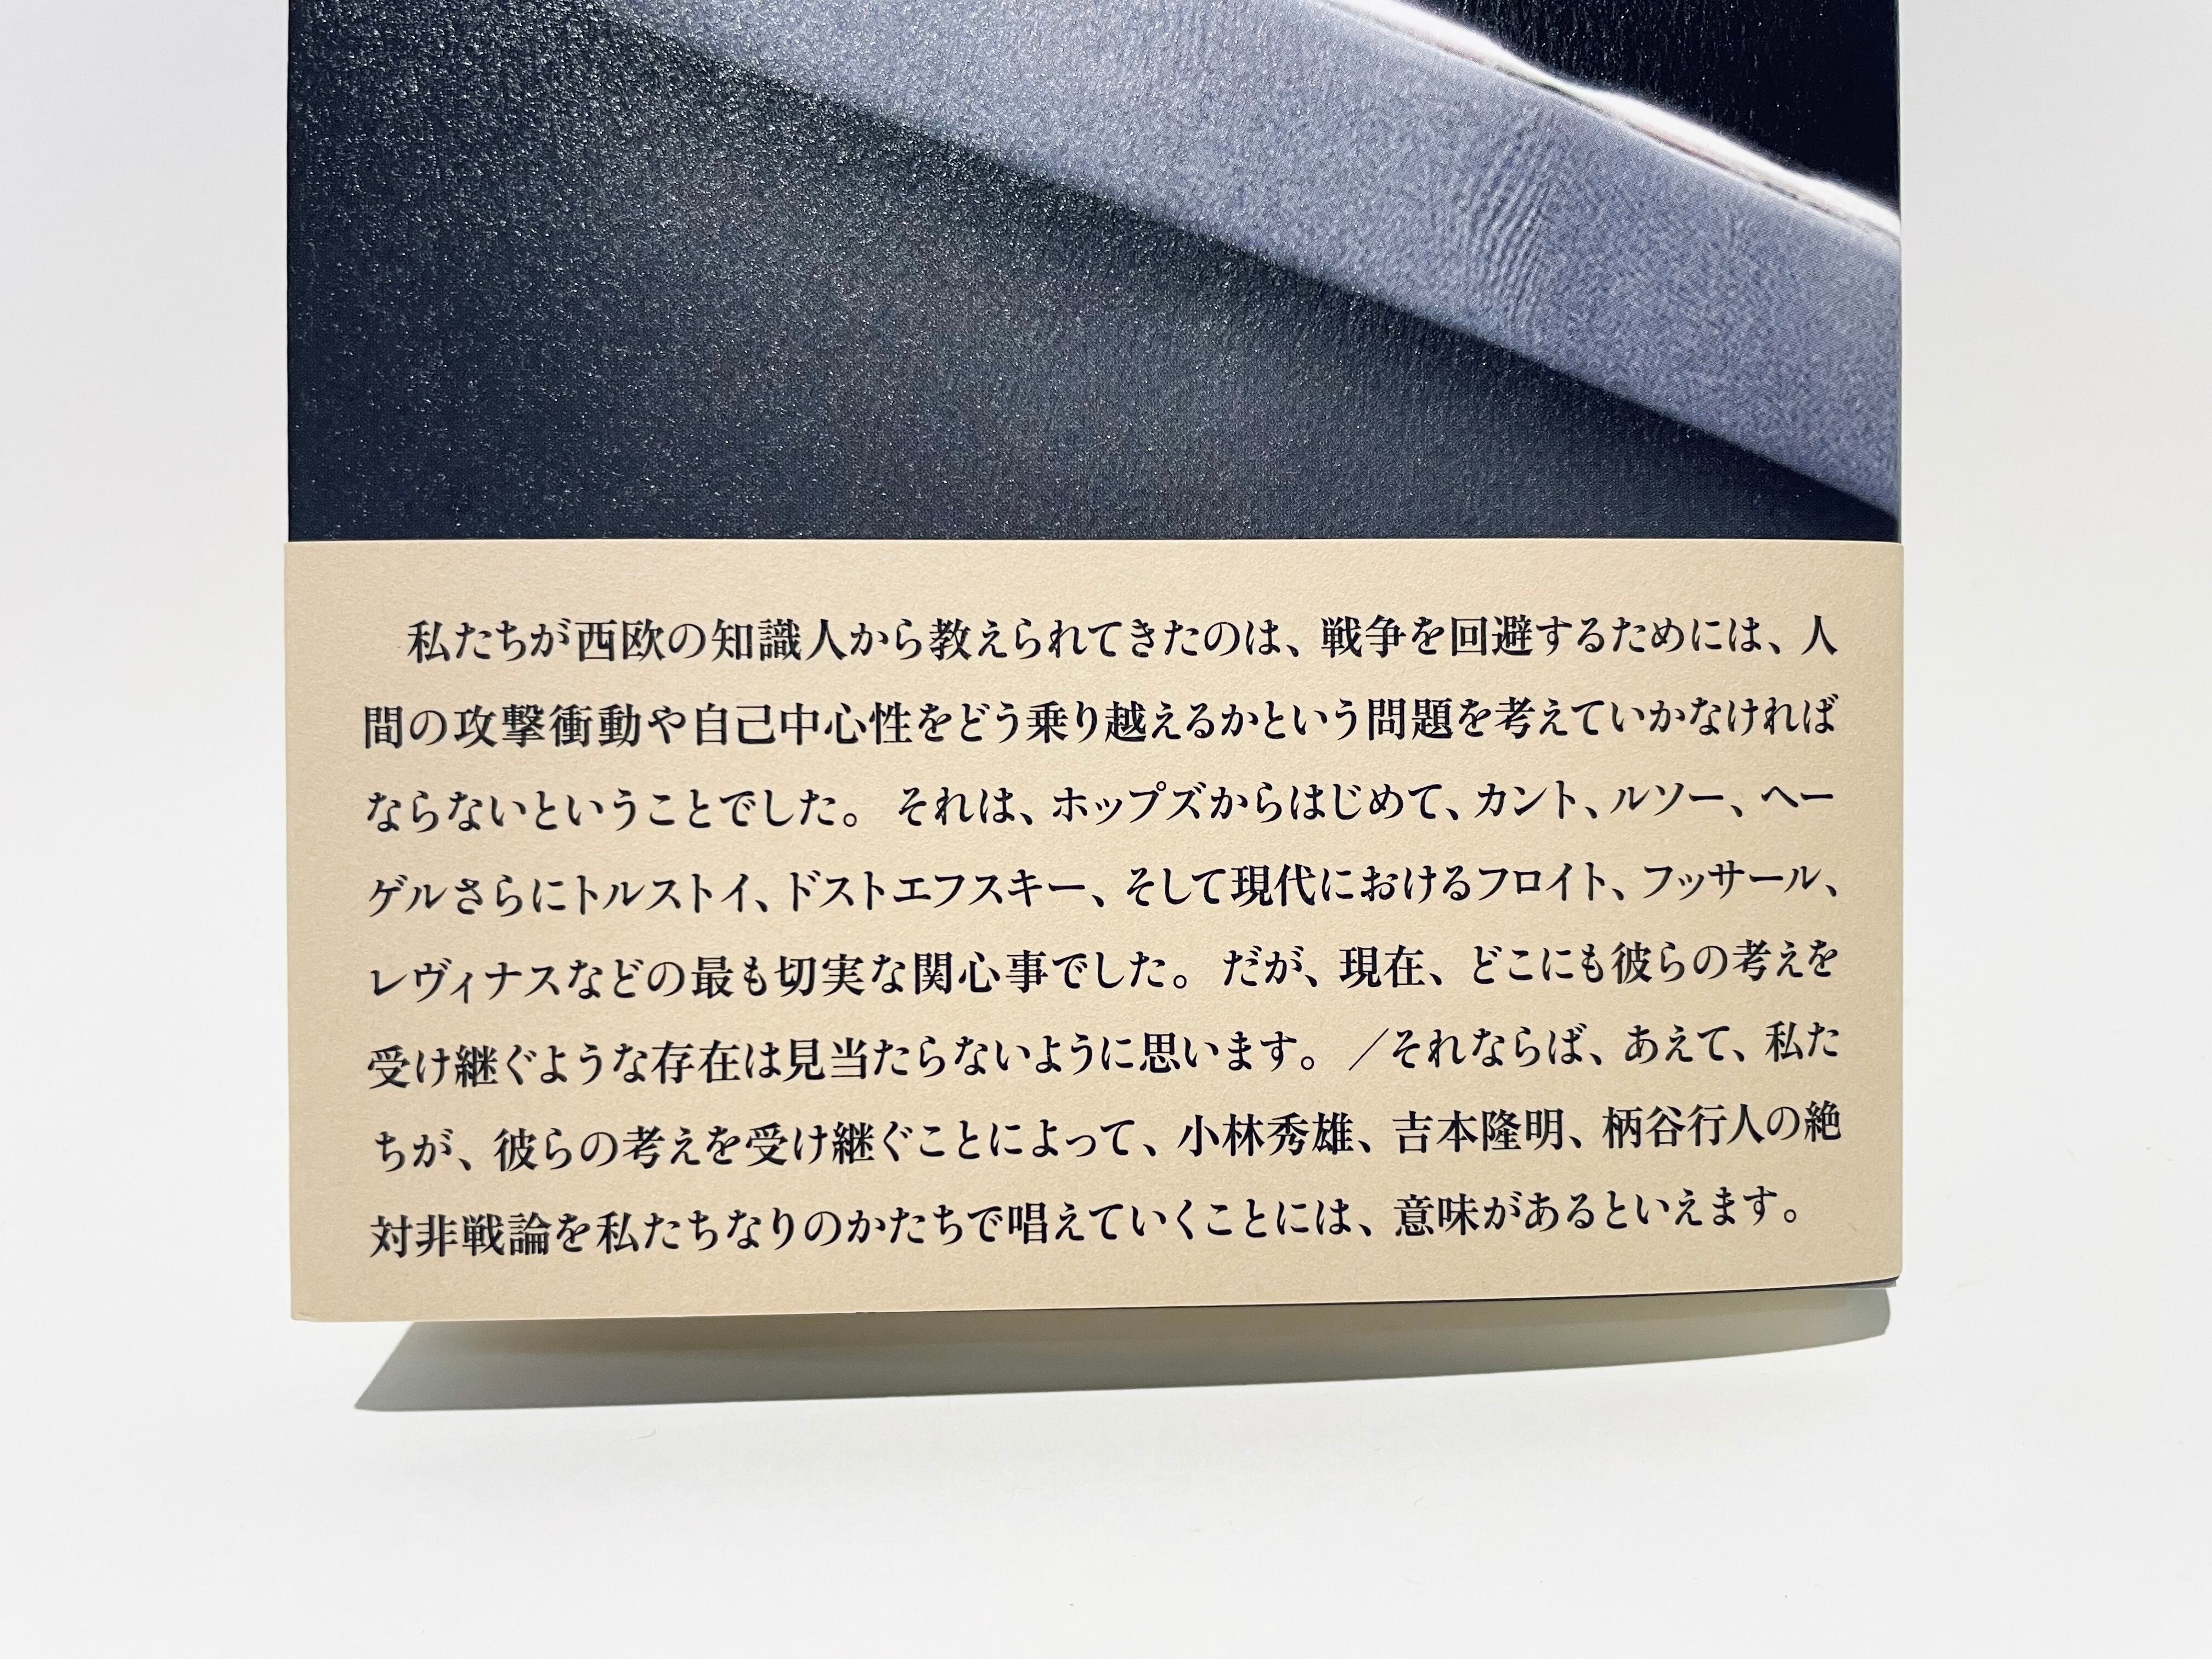 私たちが西欧の知識人から教えられてきたのは、戦争を回避するためには、人
間の攻撃衝動や自己中心性をどう乗り越えるかという問題を考えていかなければ
ならないということでした。それは、ホッブズからはじめて、カント、ルソー、ヘー
ゲルさらにトルストイ、ドストエフスキー、そして現代におけるフロイト、フッサール、
レヴィナスなどの最も切実な関心事でした。だが、現在、どこにも彼らの考えを
受け継ぐような存在は見当たらないように思います。／それならば、あえて、私た
ちが、彼らの考えを受け継ぐことによって、小林秀雄、吉本隆明、柄谷行人の絶
対非戦論を私たちなりのかたちで唱えていくことには、意味があるといえます。